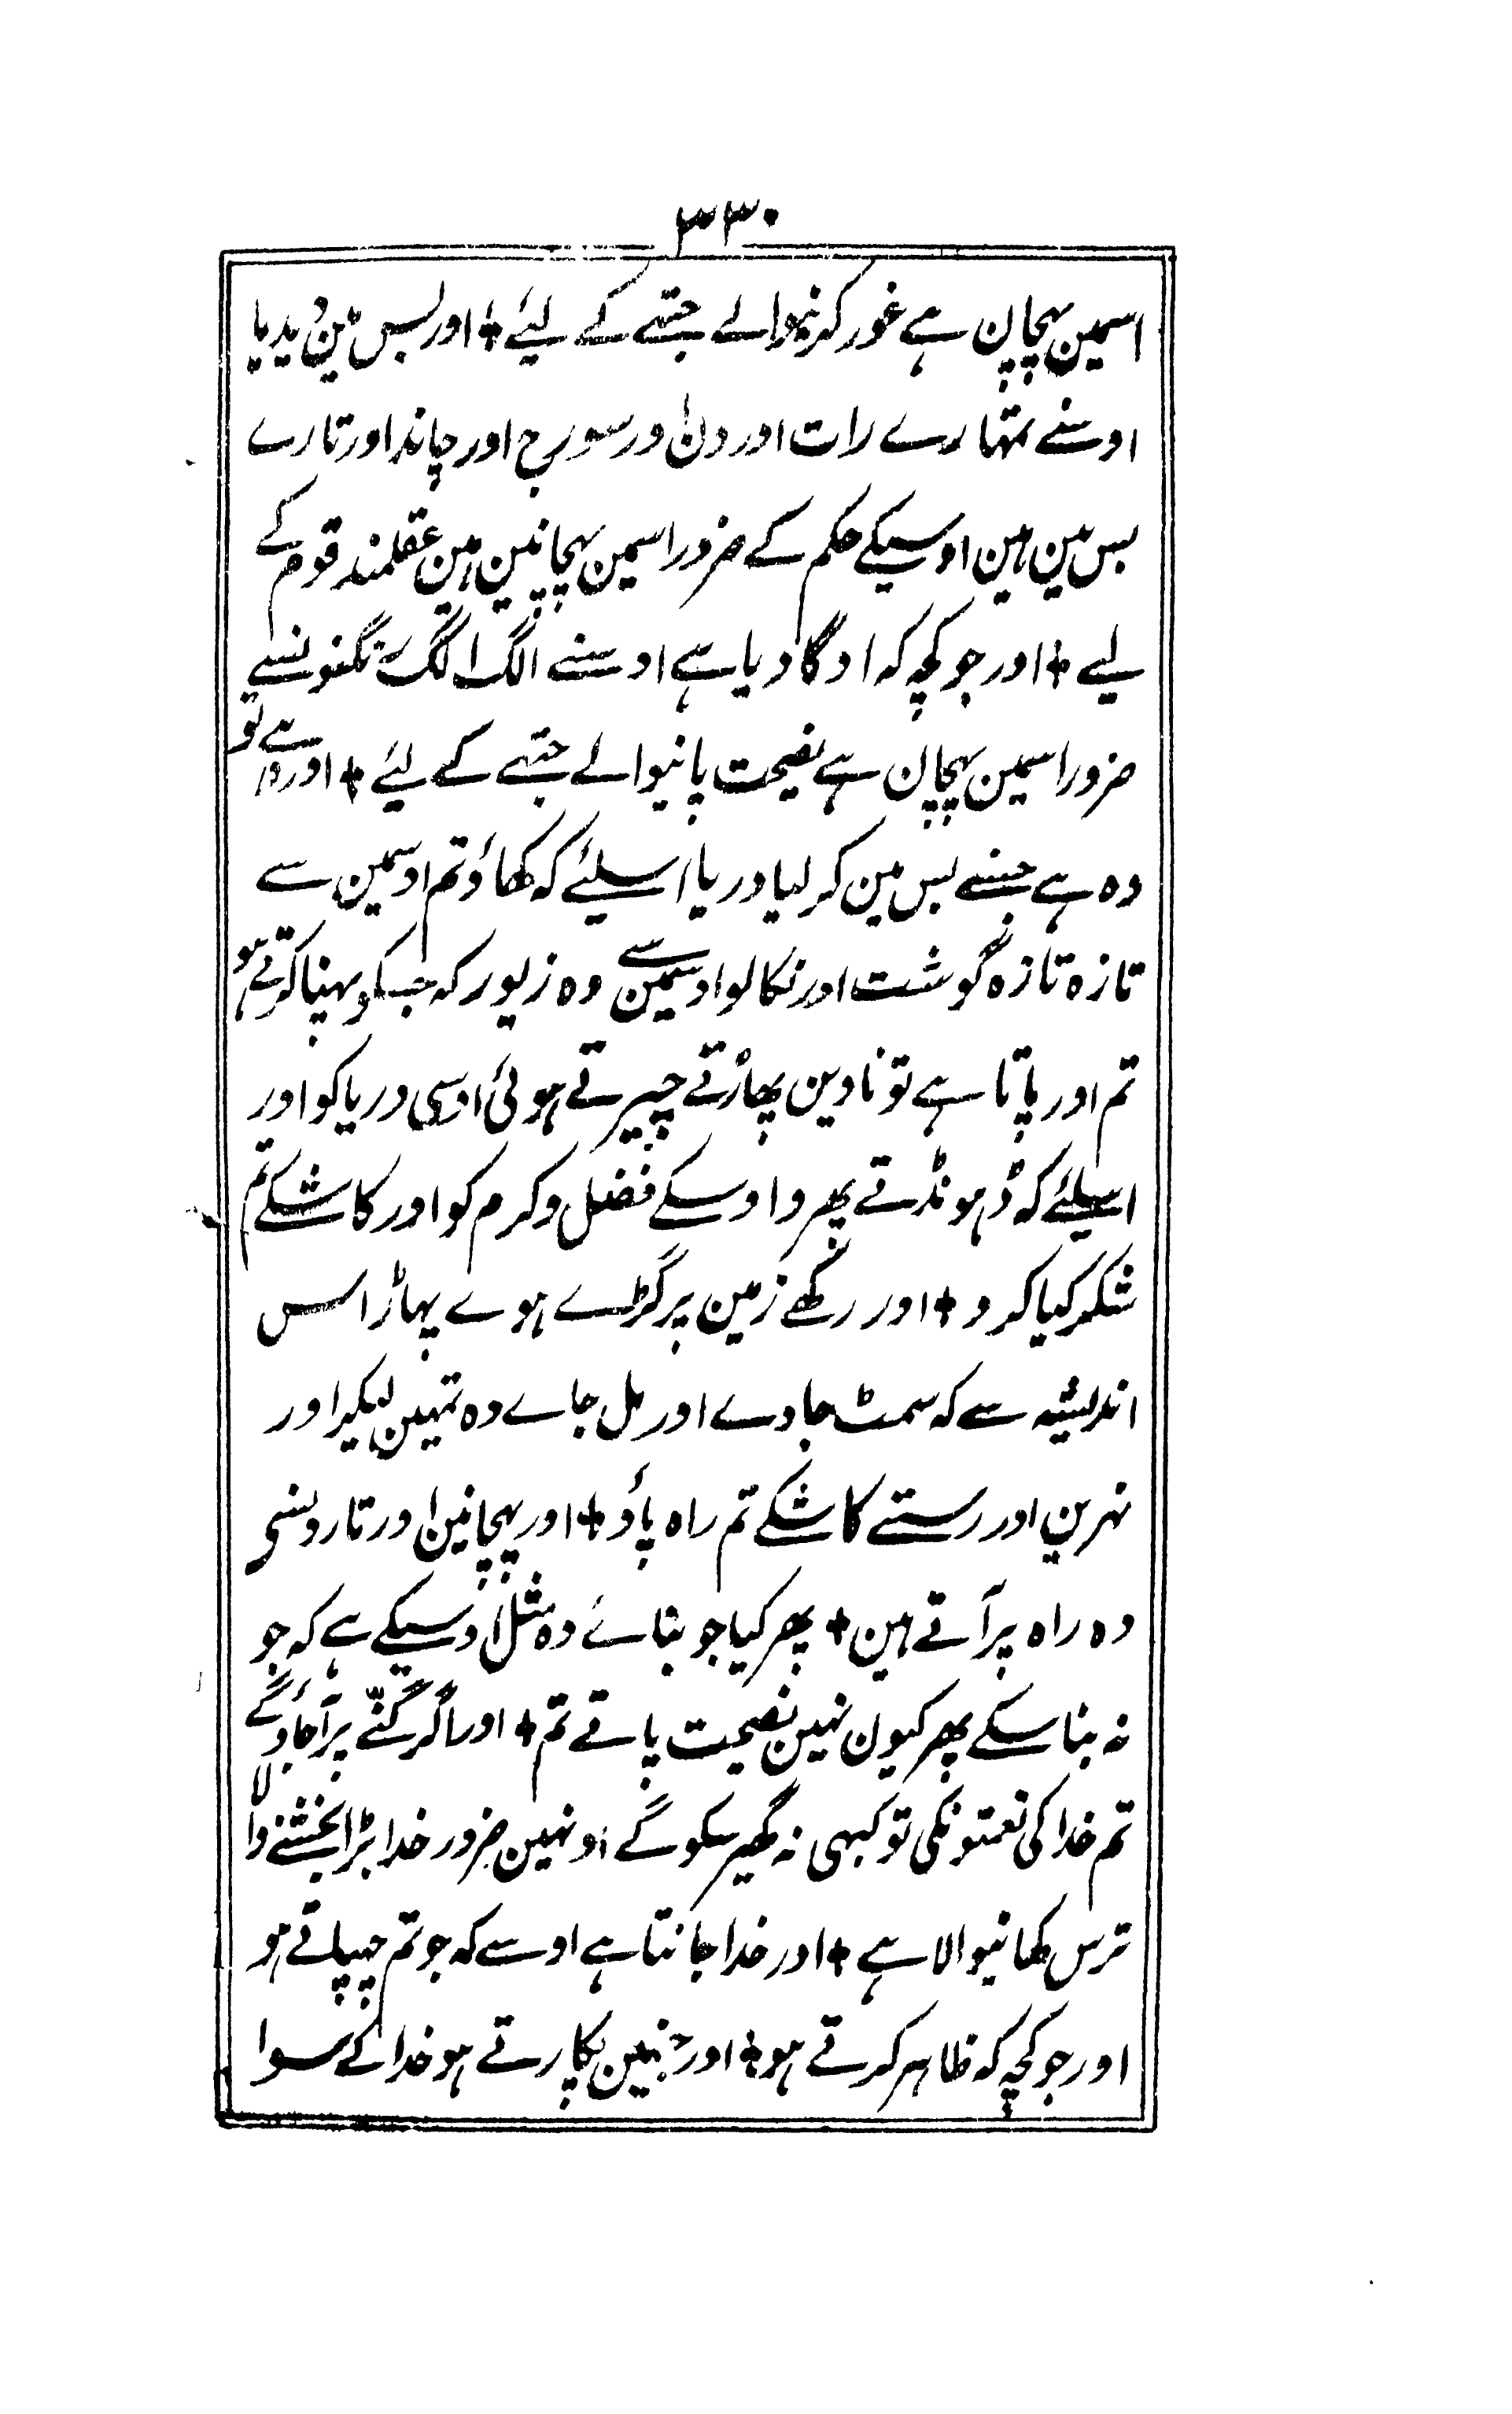 ۳۳۰
اسمین پہچان ہے غور کرنیوالے جتہے کے لیئے + اور بس مین دیدیا
اوسنے تمہارے رات اور دن اور سورج اور چاند اور تارے
بس مین ہین اوسیکے حکم کے ضرور اسمین پہچانین ہین عقلمند قوم کے
لیے + اور جو کچہ کہ اوگا دیا ہے اوسنے الگ الگ رنگتونسے
ضرور اسمین پہچان ہے نصیحت پانیوالے جتہے کے لیئے + اور وہے تو
وہ ہے جسنے بس مین کر لیا دریا اسلیئے کہ کھاؤ تم اوسمین سے
تازہ تازہ گوشت اور نکالو اوسمین سے وہ زیور کہ جسکو پہنا کرتے ہو
تم اور پاتا ہے تو ناوین پھاڑتے چیرتے ہوئی اوسی دریا کو اور
اسلیئے کہ ڈہونڈتے پھرو اوسکے فضل و کرم کو اور کاشکے تم
شکر کیا کرو + اور رکھے زمین پر گڑے ہوے پہاڑ اس
اندیشہ سے کہ سمٹ جاوے اور مل جاے وہ تمہین لیکر اور
نہرین اور رستے کاشکے تم راہ پاؤ + اور پہچانین اور تارونسی
وہ راہ پر آتے ہین + پھر کیا جو بنائے وہ مثل اوسیکے ہے کہ جو
نہ بنا سکے پھر کیون نہین نصیحت پاتے تم + اور اگر گننے پر آجاؤگے
تم خدا کی نعمتونکی تو کبہی نہ گھیر سکو گے اونہین ضرور خدا بڑا بخشنے والا
ترس کھانیوالا ہے + اور خدا جانتا ہے اوسے کہ جو تم چہپاتے ہو
اور جو کچہ کہ ظاہر کرتے ہو + اور جنہین پکارتے ہو خدا کے سوا